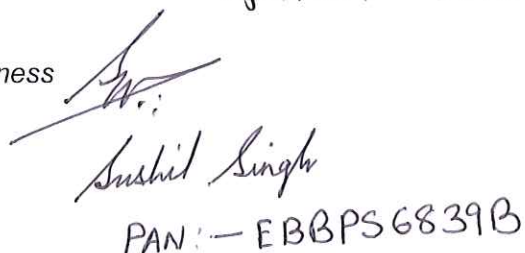 ness
Sushil Singh
PAN:- EBBPS6839B